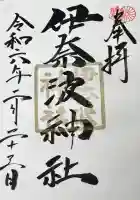 奉拝
伊奈波神社
令和六年二月二十三日